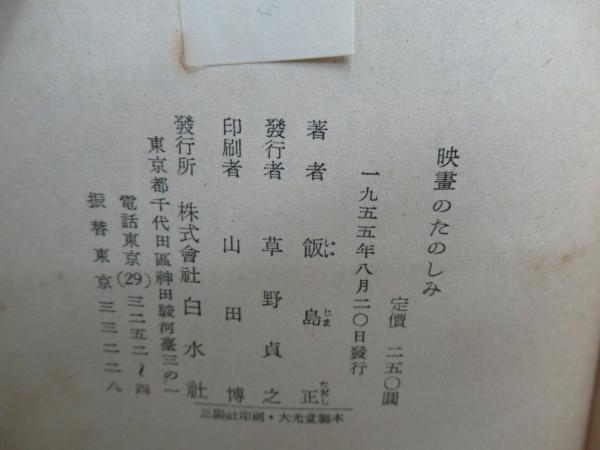 映畫のたのしみ
定價 二五〇圓
一九五五年八月二〇日發行
著者 飯島正
いいじまただし
發行者 草野貞之
印刷者 山田博
發行所 株式會社白水社
東京都千代田區神田駿河臺三の一
電話東京(29)三二五二~四
振替東京三三二二八
印刷・大光堂製本